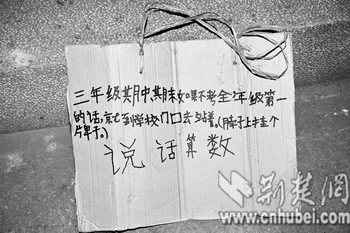 三年级其中、期末如果不考全年级第一
的话,就到学校门口去站着。(脖子上挂个
片牟子。)
说话算数
荆楚网
www.cnhubei.com